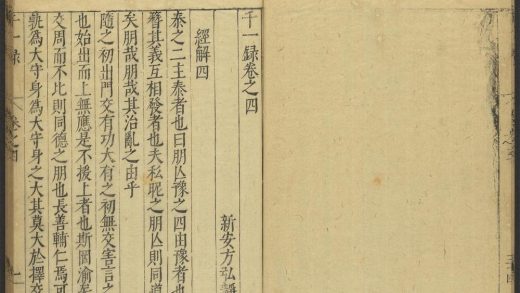 千一錄卷之四
新安方弘
經解四
泰之二主泰者也曰朋亡豫之四由豫者也
簪其義互相發者也夫私昵之朋亡則同道
矣朋哉朋哉其治亂之由乎
隨之初出門交有功大有之初無交害言之
也始出而上無應是不援上者也斯罔渝矣
交周而不比則同德之朋也長善輔仁焉可
孰為大守身為大守身之大其莫大於擇交
千一錄
卷之四
一